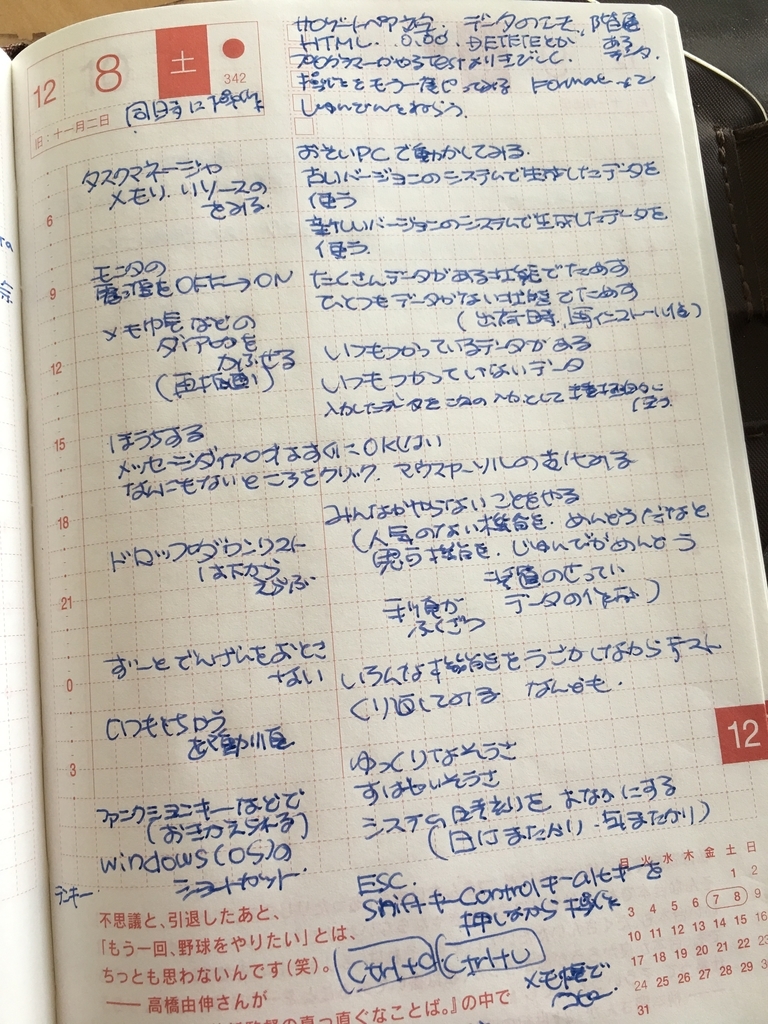 12 8 土
342
旧:十一月二日
同時に操作
サロゲートペア文字. データの
HTML. DELETEとか ある
プログラマーがやるTestよりきびしく.
操作をもう一度やってみる Format
じゅんばんをねらう.
おそいPCで動かしてみる.
古いバージョンのシステムで生成したデータを
使う
新しいバージョンのシステムで生成したデータを
使う.
タスクマネージャ
メモリ. リソースの
をみる.
6
モニタの
電源をOFF→ON
9
たくさんデータがある状態でためす
ひとつもデータがない状態でためす
(出荷時、再インストール後)
メモ帳などの
ダイアログを
かぶせる
(再描画)
12
いつもつかっているデータがある
いつもつかっていないデータ
入力したデータを次の入力として
使う.
15
ほうちする
メッセージダイアログはすぐにOKしない
なんにもないところをクリック. マウスカーソルの変化みる
18
みんながやらないことをやる
(人気のない機能を. めんどうだなと
思う機能を. じゅんびがめんどう
ドロップダウンリスト
は下から
えらぶ
21
手順が
ふくざつ
データの作成)
ずーとでんげんをおとさ
ない
0
いろんな機能をうごかしながらテスト
くり返してみる なんども.
いつもとちがう
起動順
3
ゆっくりなそうさ
すばやいそうさ
システム時刻を さかさにする
(日付またがり. 年またがり)
12
ファンクションキーなどで
(おきかえられる)
windows(OS)の
ショートカット.
テンキー
ESC.
Shiftキー Controlキー altキーを
押しながら操作
Ctrl+C Ctrl+V
メモ帳で
不思議と、引退したあと、
「もう一回、野球をやりたい」とは、
ちっとも思わないんです(笑)。
—— 高橋由伸さんが
監督の真っ直ぐなことば。』の中で
月 火 水 木 金 土 日
1 2
3 4 5 6 7 8 9
10 11 12 13 14 15 16
17 18 19 20 21 22 23
24 25 26 27 28 29 30
31